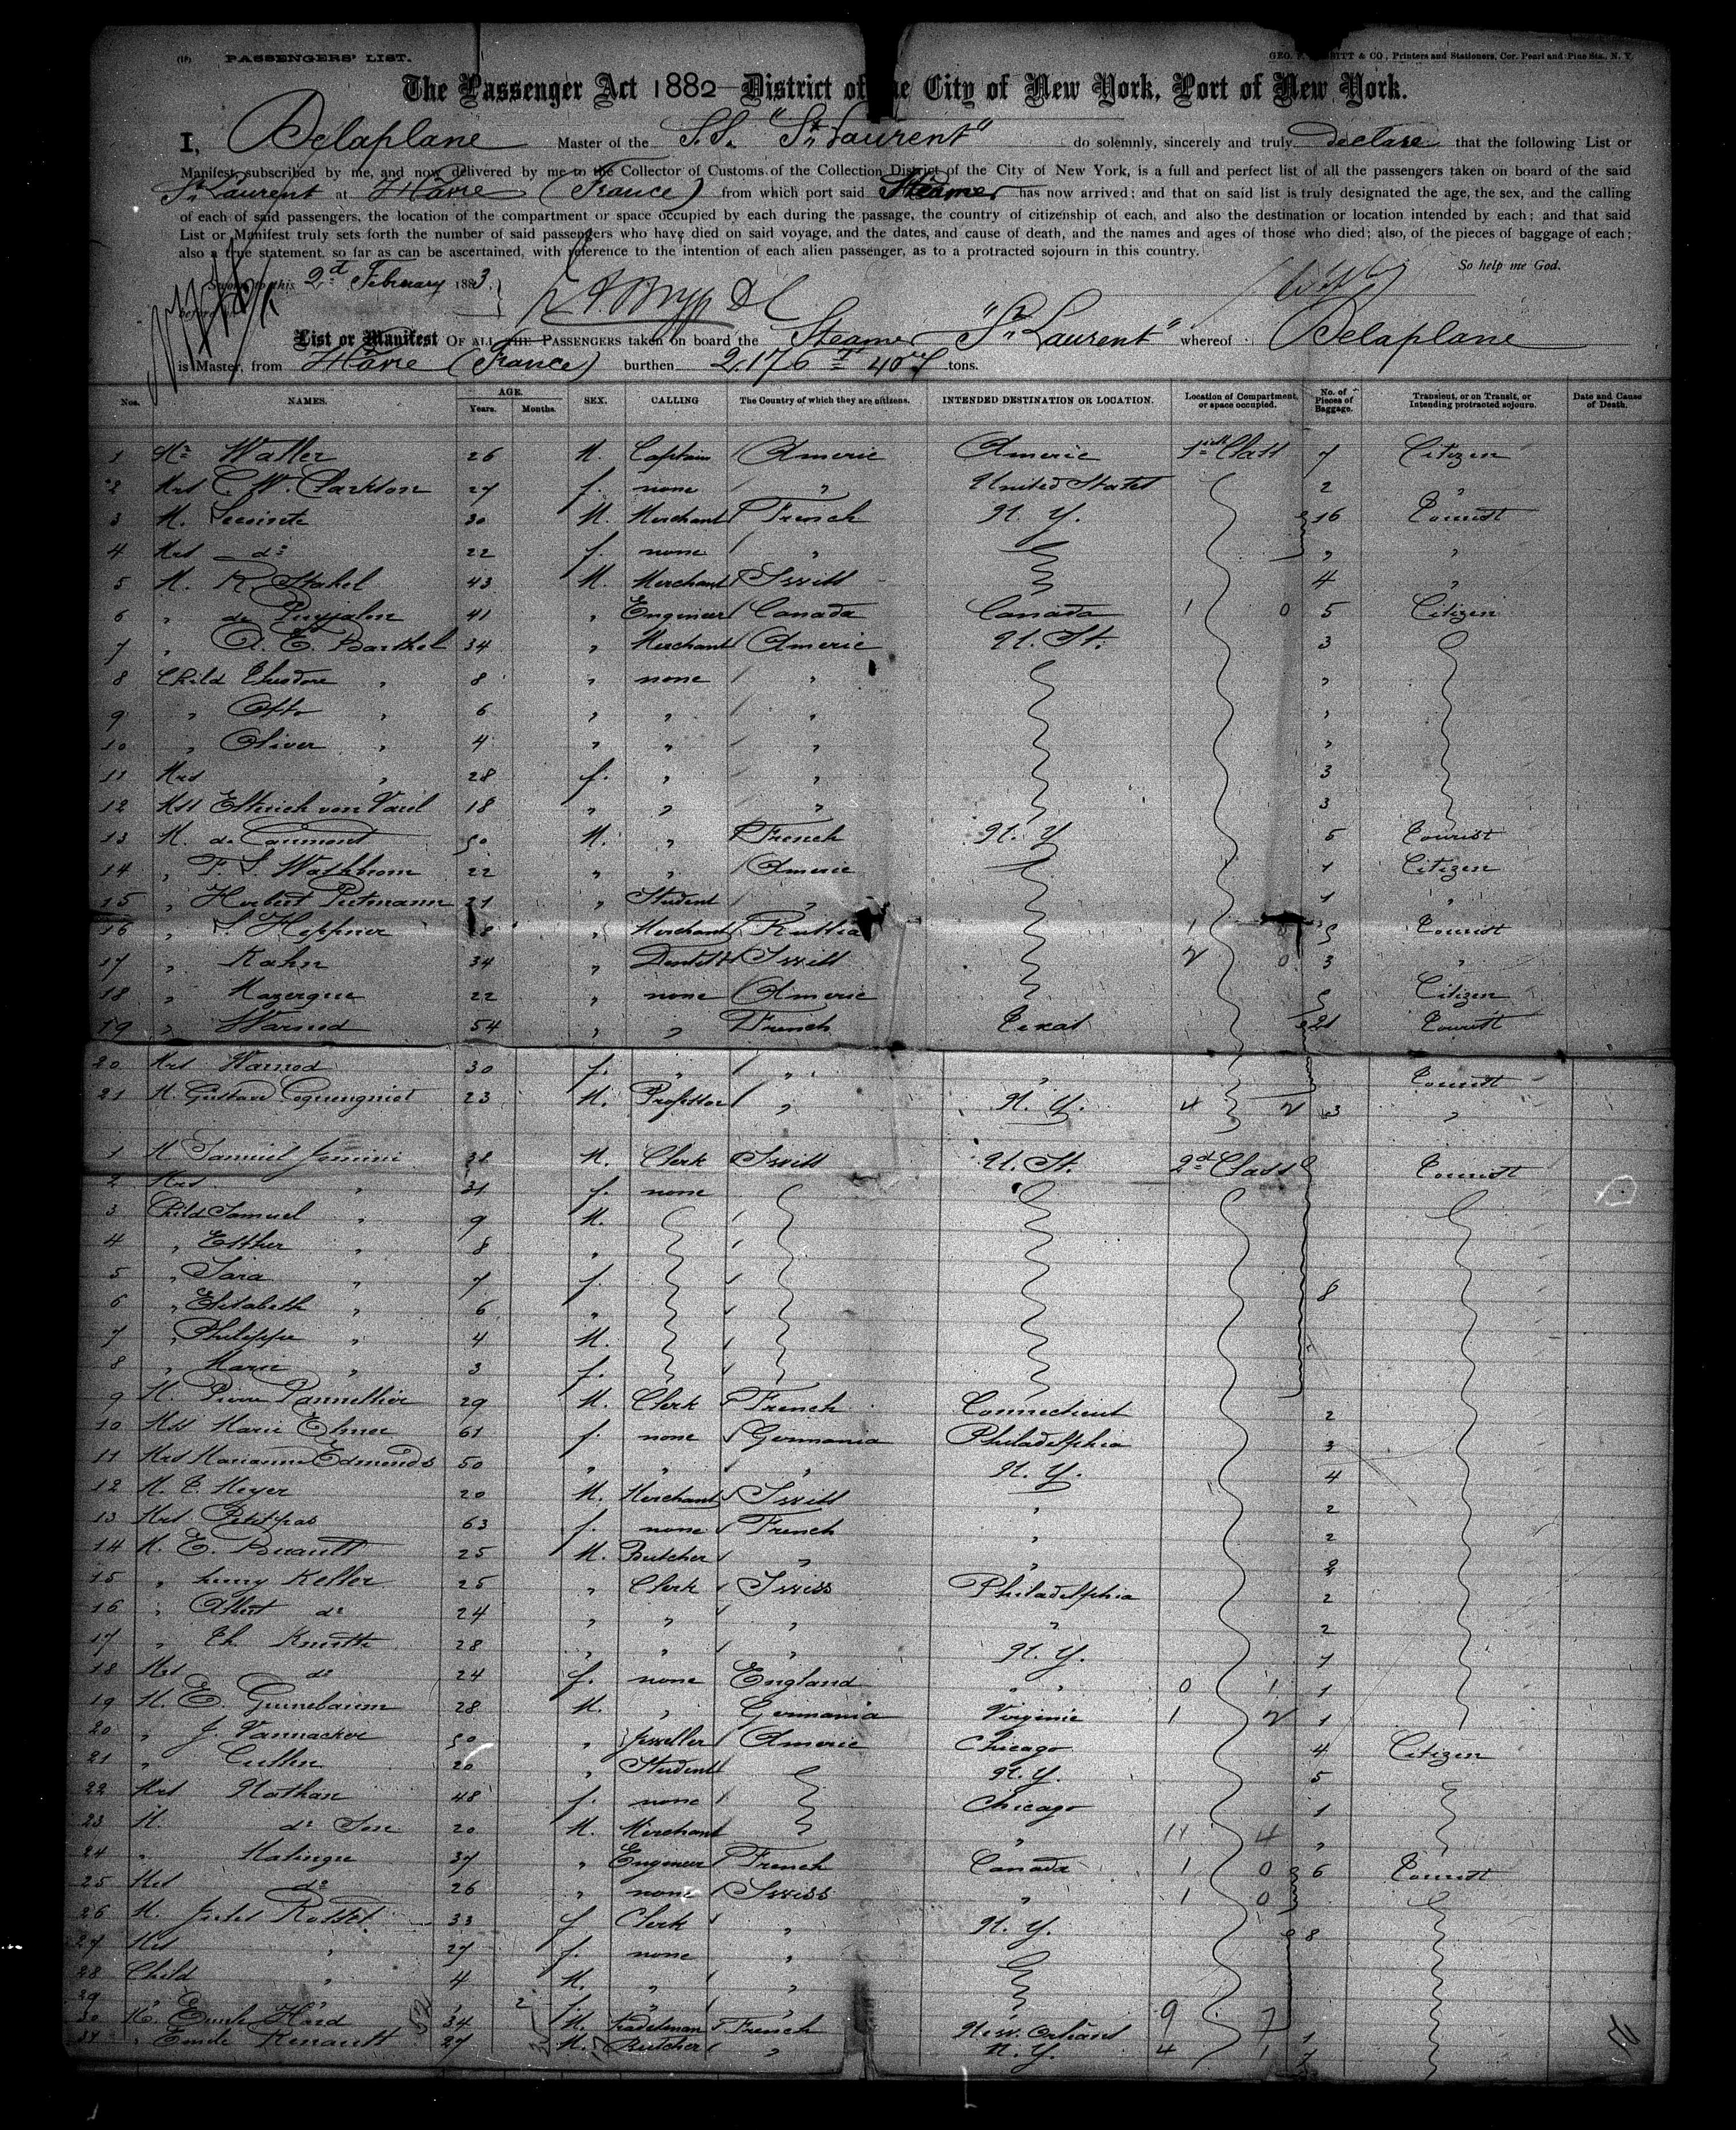 (19) PASSENGERS' LIST.
GEO. F. NESBITT & CO., Printers and Stationers, Cor. Pearl and Pine Sts., N. Y.
The Passenger Act 1882—District of the City of New York, Port of New York.
I, Delaplane Master of the S.S. "St Laurent" do solemnly, sincerely and truly declare that the following List or
Manifest, subscribed by me, and now delivered by me to the Collector of Customs of the Collection District of the City of New York, is a full and perfect list of all the passengers taken on board of the said
St Laurent at Hâvre (France) from which port said Steamer has now arrived; and that on said list is truly designated the age, the sex, and the calling
of each of said passengers, the location of the compartment or space occupied by each during the passage, the country of citizenship of each, and also the destination or location intended by each; and that said
List or Manifest truly sets forth the number of said passengers who have died on said voyage, and the dates, and cause of death, and the names and ages of those who died; also, of the pieces of baggage of each;
also a true statement, so far as can be ascertained, with reference to the intention of each alien passenger, as to a protracted sojourn in this country.
So help me God.
Sworn to this 2d February 1883
before me
List or Manifest OF ALL THE PASSENGERS taken on board the Steamer "St Laurent" whereof Delaplane
is Master, from Hâvre (France) burthen 2,176 tons.
Nos. NAMES. AGE. Years. Months. SEX. CALLING The Country of which they are citizens. INTENDED DESTINATION OR LOCATION. Location of Compartment, or space occupied. No. of Pieces of Baggage. Transient, or on Transit, or Intending protracted sojourn. Date and Cause of Death.
1 Mr Waller 26 M. Captain Americ Americ 1st Class 7 Citizen
2 Mrs C. W. Clarkson 27 f. none " United States 2 "
3 M. 30 M. Merchant French N. Y. 16 Tourist
4 Mrs do 22 f. none " " "
5 M. R. Stahel 43 M. Merchant Swiss 4 "
6 " de Puyjalon 41 " Engineer Canada Canada 1 0 5 Citizen
7 " A. E. Barthel 34 " Merchant Americ U. St. 3
8 Child Theodore " 8 " none " "
9 " Otto " 6 " " " "
10 " Oliver " 4 " " " "
11 Mrs " 28 f. " " 3
12 Mss von Varel 18 " " " 3
13 M. de Caumont 50 M. " French N. Y. 5 Tourist
14 " F. S. Washbrom 22 " " Americ 1 Citizen
15 " Herbert Putmann 21 " Student " 1 "
16 " S. Heppner " Merchant Russia 1 0 5 Tourist
17 " Kahn 34 " Dentist Swiss 2 0 3 "
18 " Mazergue 22 " none Americ 5 Citizen
19 " Warnod 54 " " French Texas 21 Tourist
20 Mrs Warnod 30 f. " " " Tourist
21 M. Gustave Coquengniot 23 M. Professor " N. Y. 4 2 3 "
1 M Samuel Jomini 31 M. Clerk Swiss U. St. 2d Class Tourist
2 Mrs " 31 f. none
3 Child Samuel " 9 M.
4 " Esther " 8 "
5 " Sara " 7 f. 8
6 " Elisabeth " 6 "
7 " Philippe " 4 M.
8 " Marie " 3 f.
9 M. Pierre Pannellier 29 M. Clerk French Connecticut 2
10 Mss Marie Elmer 61 f. none Germania Philadelphia 3
11 Mrs Marianne Edmonds 50 " " " N. Y. 4
12 M. E. Meyer 20 M. Merchant Swiss " 2
13 Mrs Petitpas 63 f. none French " 2
14 M. E. Buault 25 M. Butcher " " 2
15 " Henry Keller 25 " Clerk Swiss Philadelphia 2
16 " Albert do 24 " " " " 2
17 " Th. Knutti 28 " " " N. Y. 1
18 Mrs do 24 f. none England " " 0 1 1
19 M. E. Grunebaum 28 M. " Germania Virginie 1 2 1
20 " J. Vannacker 50 " Jeweller Americ Chicago 4 Citizen
21 " Cullin 20 " Student N. Y. 5
22 Mrs Nathan 48 f. none Chicago 1
23 M. do Son 20 M. Merchant " 11 4 "
24 " Malingre 37 " Engineer French Canada 1 0 6 Tourist
25 Mrs do 26 " none Swiss " 1 0
26 M. Jules Rossel 33 f Clerk " N. Y. 8
27 Mrs " 27 f. none "
28 Child " 4 M. " "
29 " " 2 f. " " 9 7
30 M. Emile Hard 34 M. Tradesman French New Orleans 1
31 " Emile Renault 27 M. Butcher " N. Y. 4 1